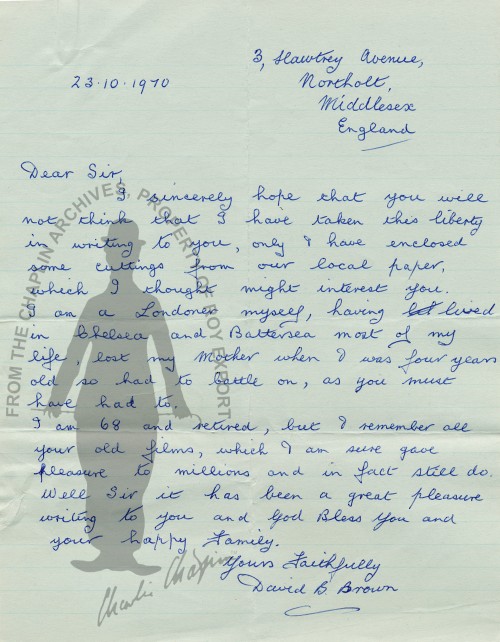 3, Hawtrey Avenue,
23.10.1970
Northolt,
Middlesex
England
Dear Sir,
I sincerely hope that you will
not think that I have taken this liberty
in writing to you, only I have enclosed
some cuttings from our local paper,
which I thought might interest you.
I am a Londoner myself, having lived
in Chelsea and Battersea most of my
life, lost my Mother when I was four years
old so had to battle on, as you must
have had to.
I am 68 and retired, but I remember all
your old films, which I am sure gave
pleasure to millions and in fact still do.
Well Sir it has been a great pleasure
writing to you and God Bless You and
your happy Family.
Yours Faithfully
David B. Brown
FROM THE CHAPLIN ARCHIVES, PROPERTY OF ROY EXPORT
Charlie Chaplin